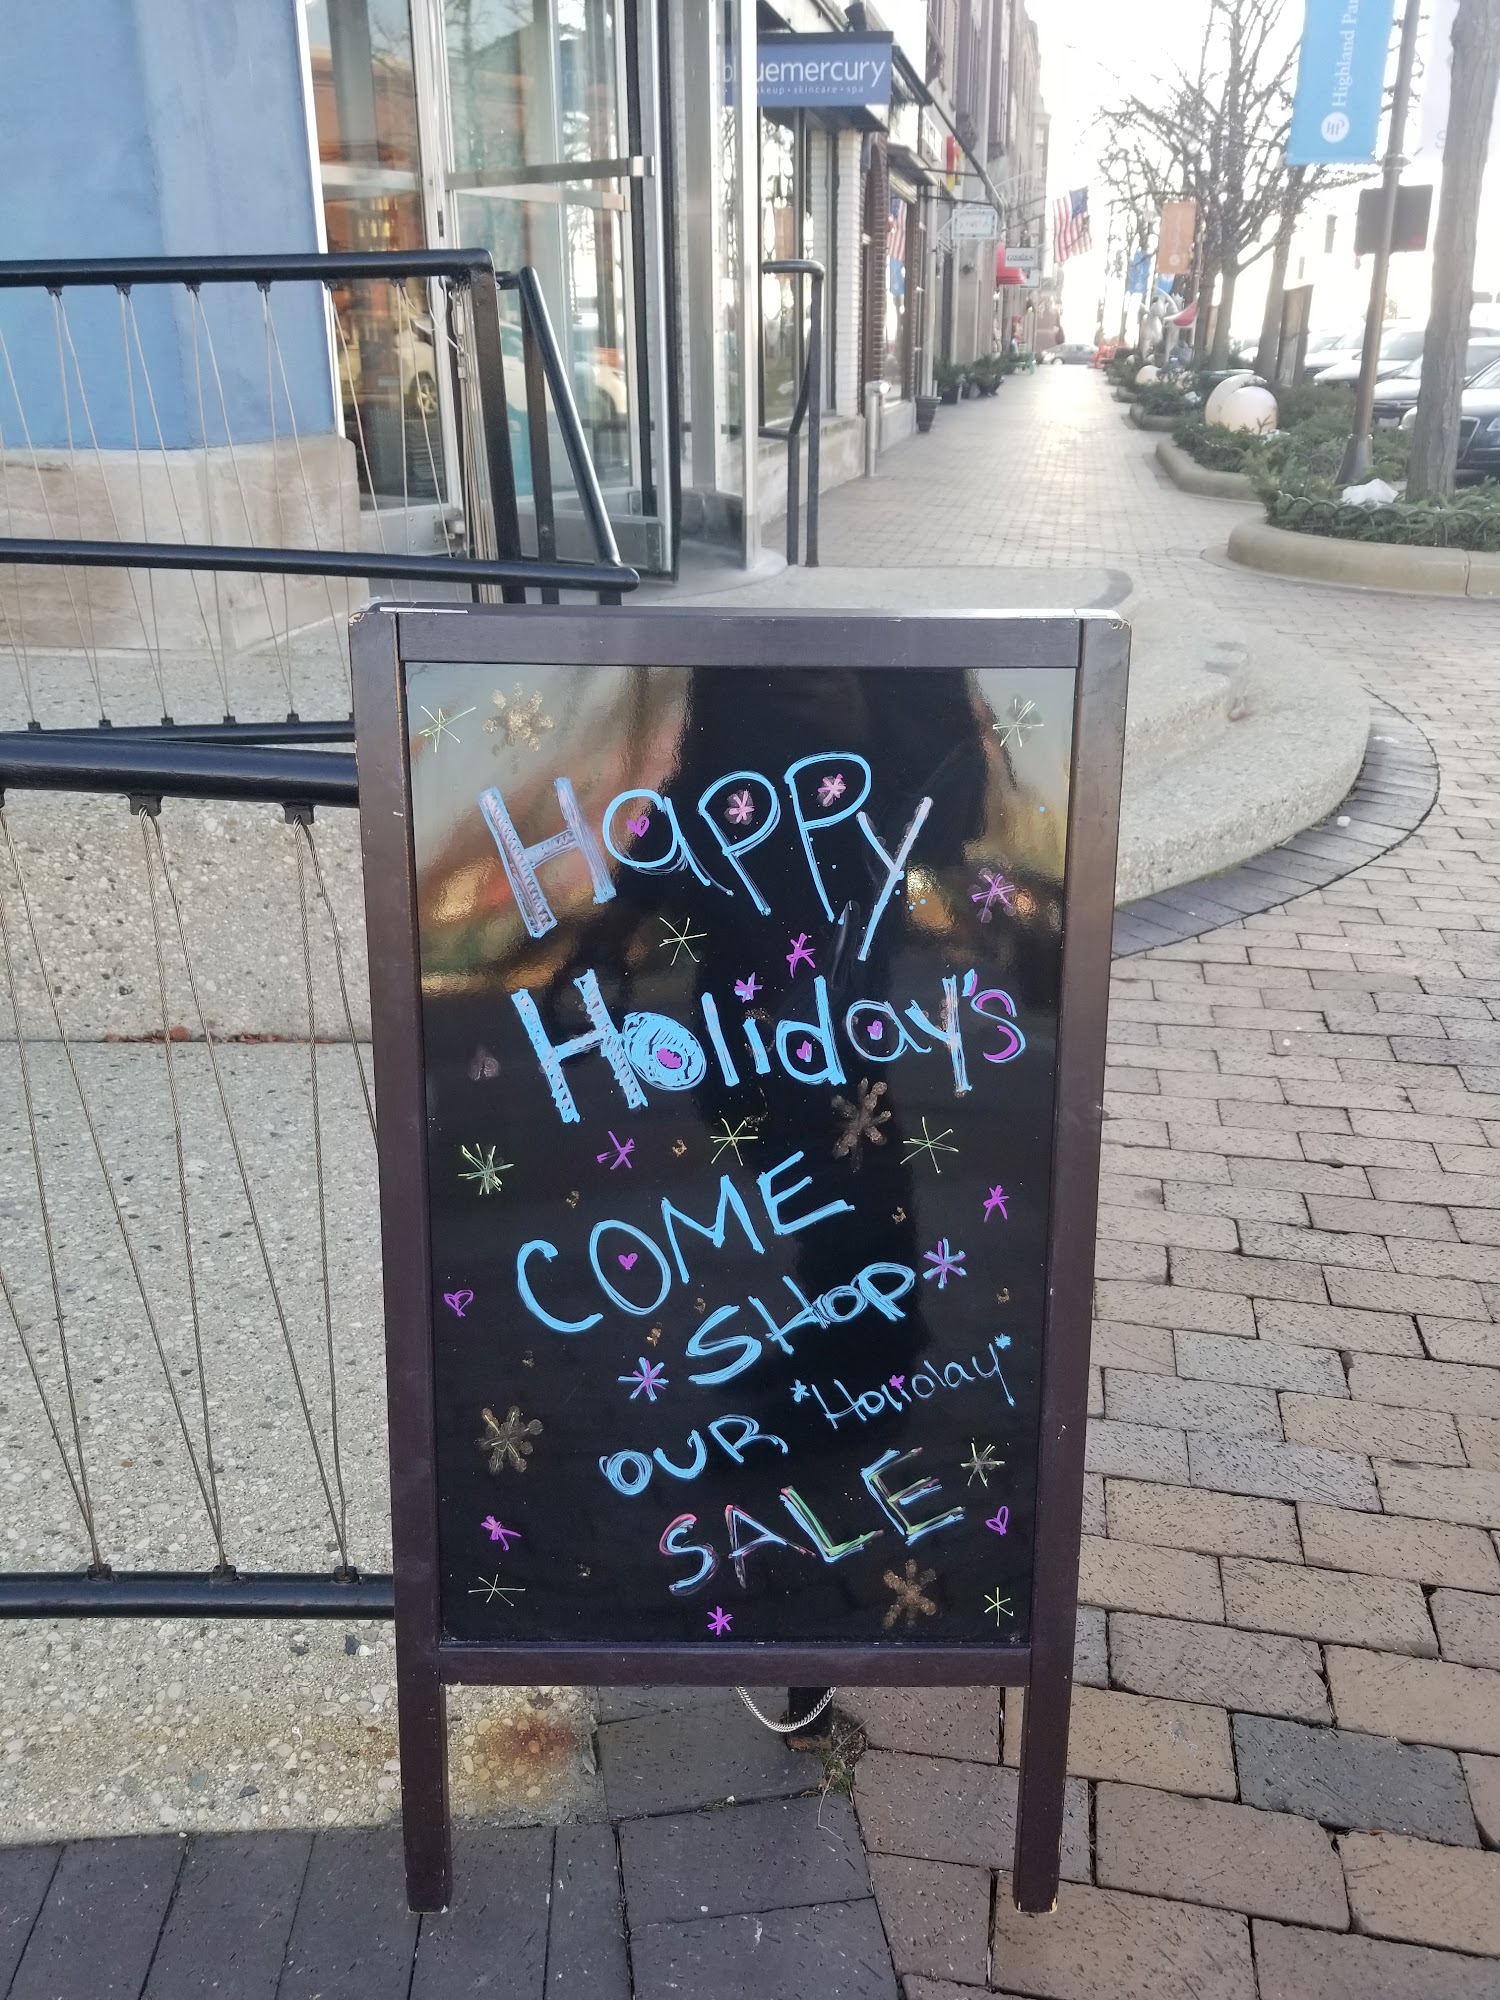 bluemercury
makeup · skincare · spa
Highland Par
Happy
Holiday's
COME
SHOP
OUR "Holiday"
SALE